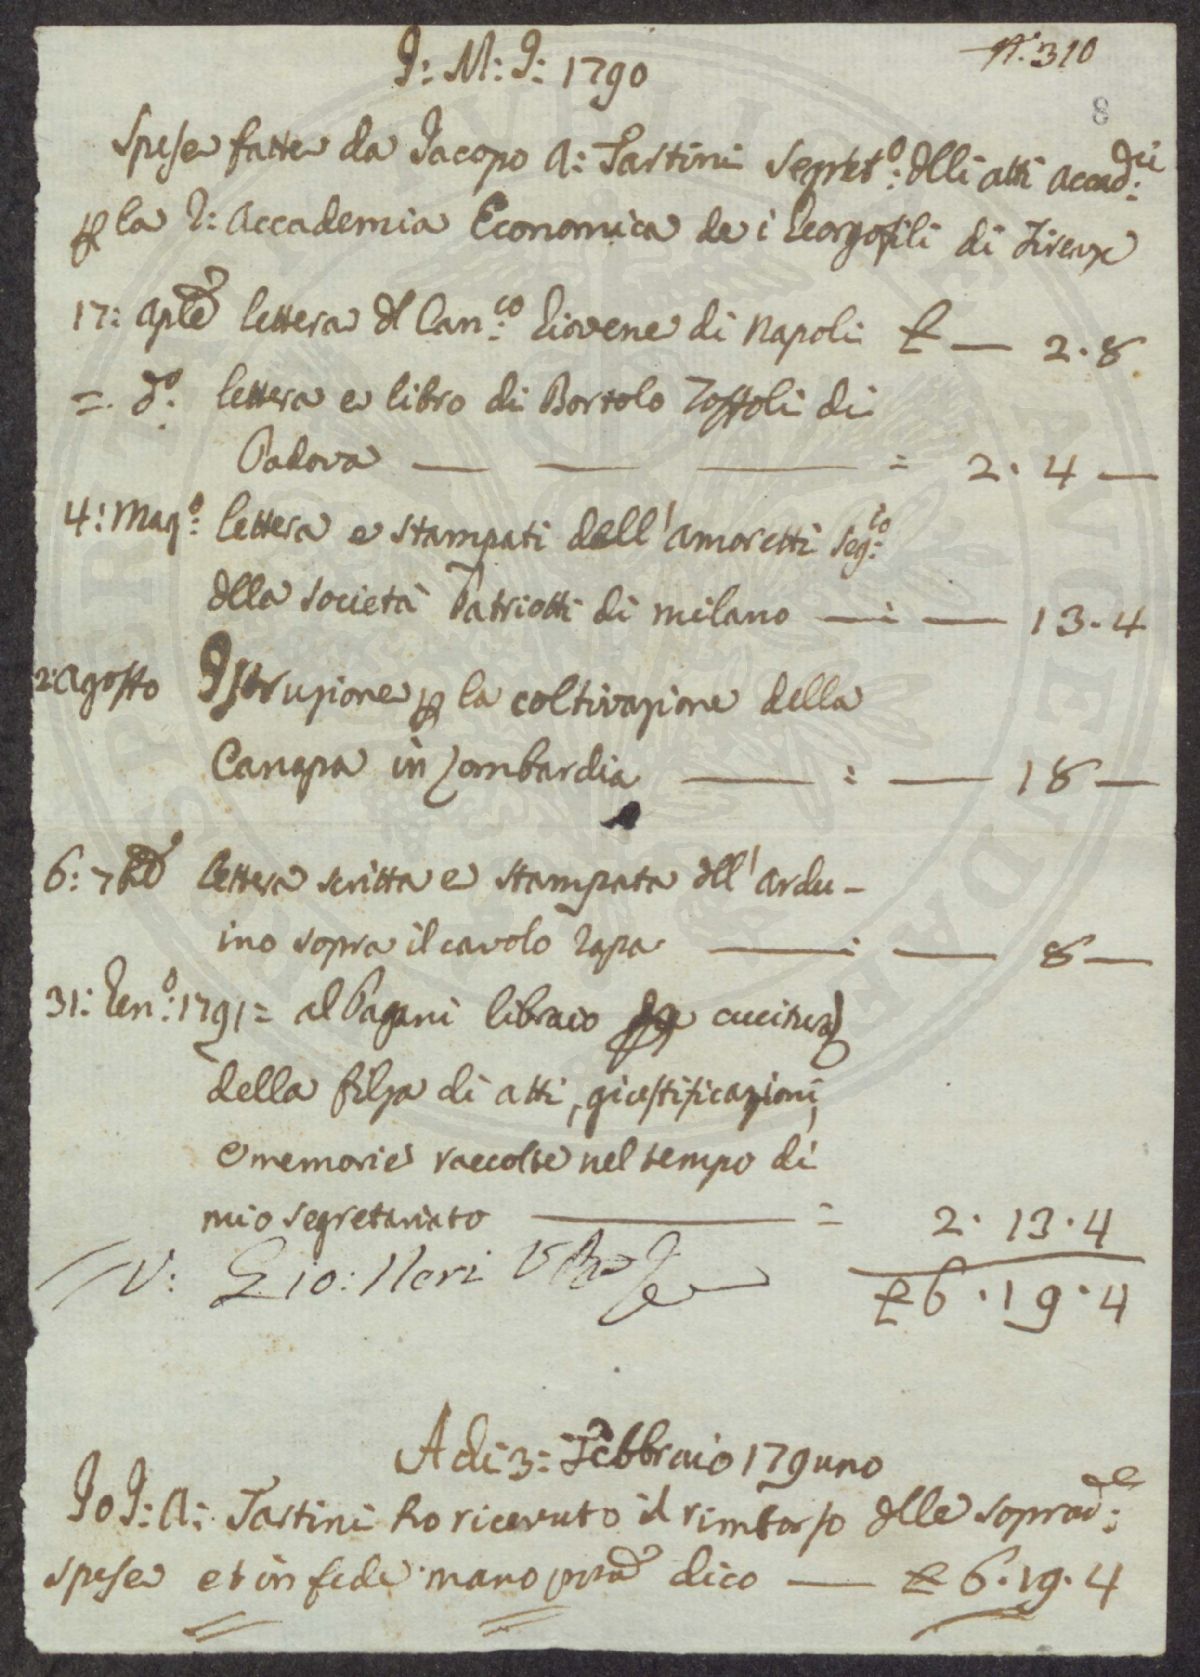 N.° 310
J: M: J: 1790
8
Spese fatte da Jacopo A: Tartini Segret.º dlli atti Accad.ci
p la I: Accademia Economica de i Georgofili di Firenze
17: Aple lettera dl Can.co Giovene di Napoli £ — 2.8
=. d.º lettera e libro di Bortolo Toffoli di
Padova — — — = 2.4 —
4: Mag.º lettera e stampati dell'Amoretti Seg.rio
dlla società Patriotti di Milano — : — 13.4
2: Agosto Istruzione p la coltivazione della
Canapa in Lombardia — : — 18 —
6: 7bre lettera scritta e stampata dll'Ardu-
ino sopra il cavolo rapa — : — 8 —
31: Gen.º: 1791 = al Pagani libraio p cucitura
della filza di atti, giustificazioni,
e memorie raccolte nel tempo di
mio segretariato — = 2.13.4
V: Gio: Neri £ 6.19.4
A di 3: Febbraio 179uno
Io J: A: Tartini ho ricevuto il rimborso dlle soprad.e
spese et in fede mano pp.a dico — £ 6.19.4